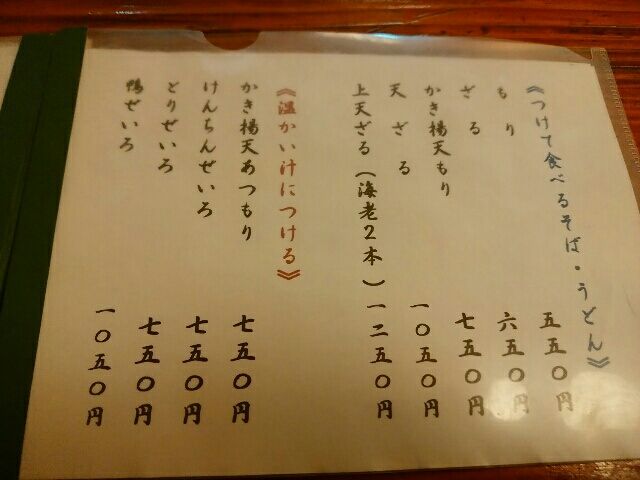 《つけて食べるそば・うどん》
もり 五五〇円
ざる 六五〇円
かき揚天もり 七五〇円
天ざる 一〇五〇円
上天ざる(海老2本)一二五〇円
《温かい汁につける》
かき揚天あつもり 七五〇円
けんちんせいろ 七五〇円
とりせいろ 七五〇円
鴨せいろ 一〇五〇円